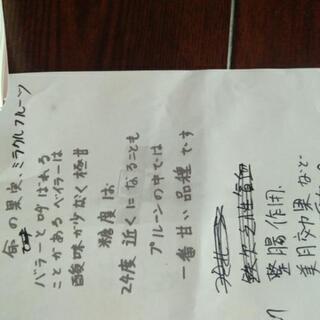 命の果実、ミラクルフルーツ
バラーと呼ばれる
ことがあるベイラーは
酸味が少なく極甘
糖度は
24度近くになることも
プルーンの中では
一番甘い品種です
整腸作用、
美肌効果など